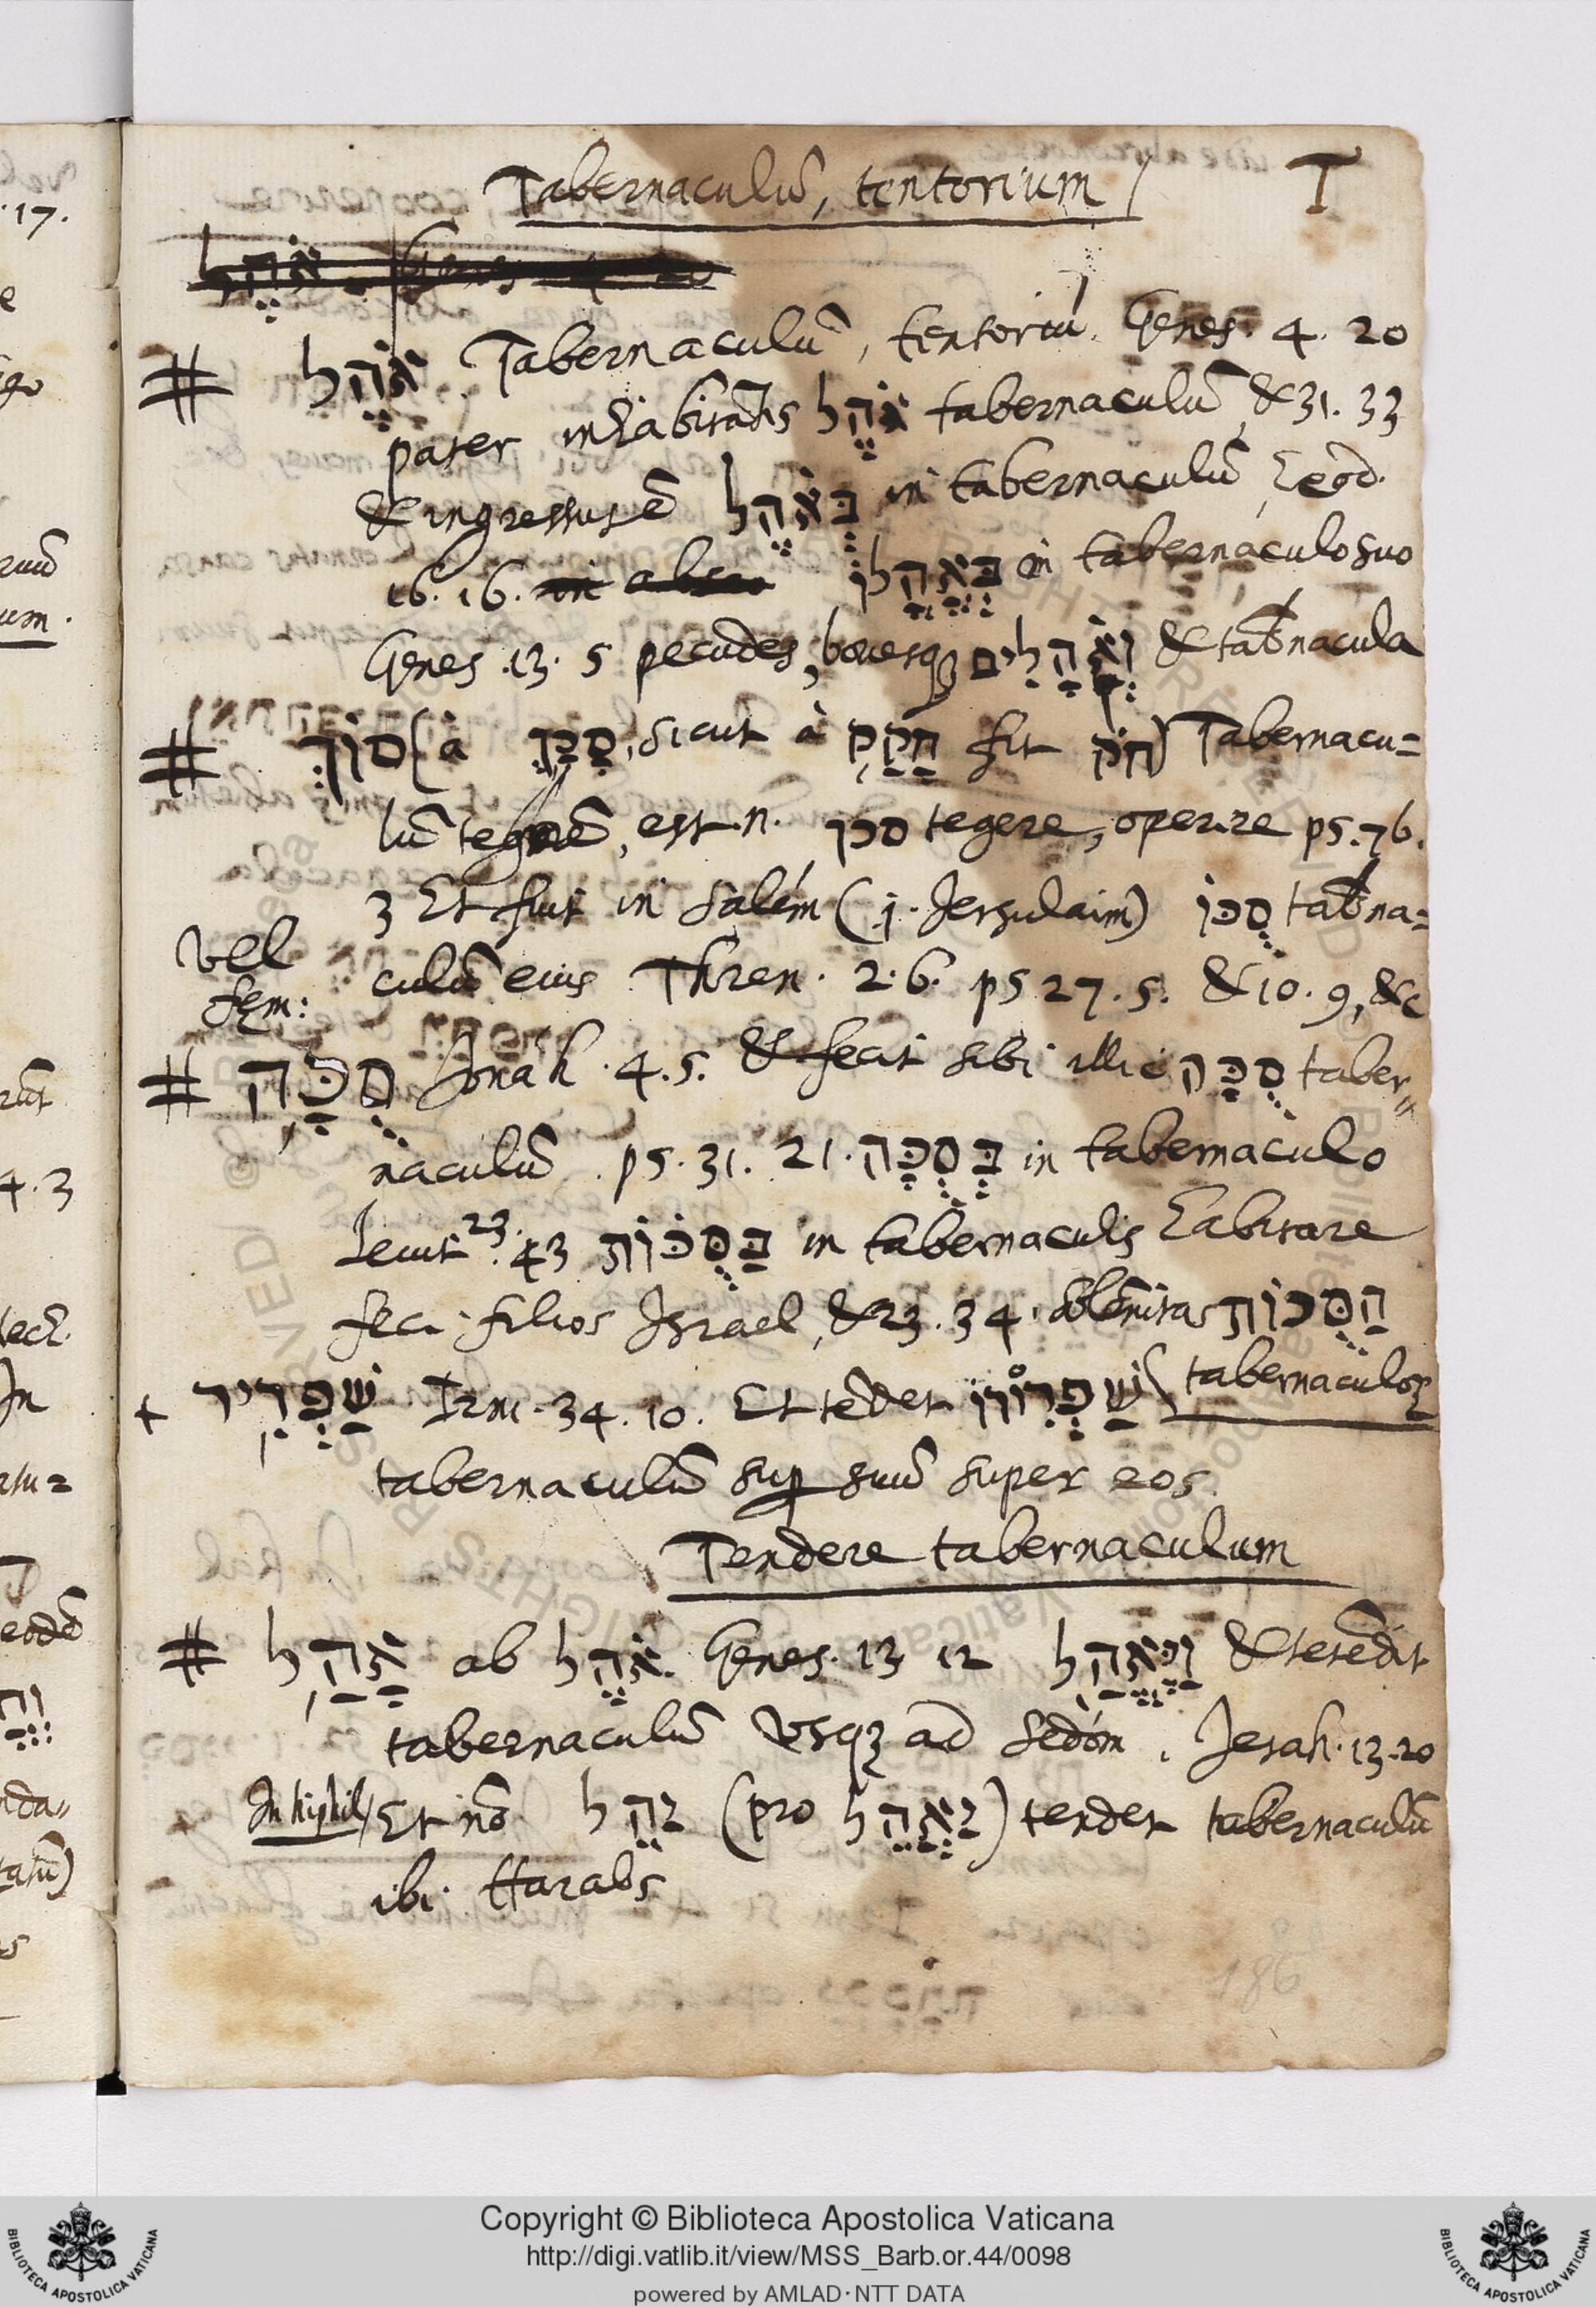 Tabernaculũ, tentorium
T
אֹהֶל Genes 4 20
# אֹהֶל . Tabernaculũ, tentoriũ. Genes. 4. 20
pater inhabitãtis אֹהֶל tabernaculũ, & 31. 33
& ingressus ẽ בְּאֹהֶל in tabernaculũ,
16. 16. in בְּאָהֳלוֹ in tabernaculo suo
Genes . 13. 5 pecudes, bouesq וְאֹהָלִים & tabnacula
# סוֹךְ (à סָכַךְ, sicut à חָקַק fit חֹק) Tabernacu=
lũ, est .n. סכך tegere, operire ps. 76.
3 Et fuit in Salém (.i. Jersulaim) סֻכּוֹ tabna=
Vel
fem:
culũ eius Thren. 2. 6. ps 27. 5. & 10. 9, &c
# סֻכָּה Jonáh . 4. 5. & fecit sibi illic סֻכָּה taber=
naculũ . ps. 31. 21. בְּסֻכָּה in tabernaculo
Leuit 23. 43 בַּסֻּכּוֹת in tabernaculis habitare
feci filios Israel, & 23. 34. solẽnitas הַסֻּכוֹת
tabernaculoꝝ
+ שַׁפְרִיר Irmi. 34. 10. Et tẽdet שַׁפְרִוֹרוֹ
tabernaculũ sup suũ super eos.
Tendere tabernaculum
# אָהַל ab אֹהֶל. Genes. 13 12 וַיֶּאֱהַל & tetẽdit
tabernaculũ Vsqꝫ ad Sedóm . Jesah. 13. 20
In hiphil
Et nõ יַהֵל (pro יַאֲהֵל) tendet tabernaculũ
ibi Harabs
186
Copyright © Biblioteca Apostolica Vaticana
http://digi.vatlib.it/view/MSS_Barb.or.44/0098
powered by AMLAD·NTT DATA
BIBLIOTECA APOSTOLICA VATICANA
BIBLIOTECA APOSTOLICA VATICANA